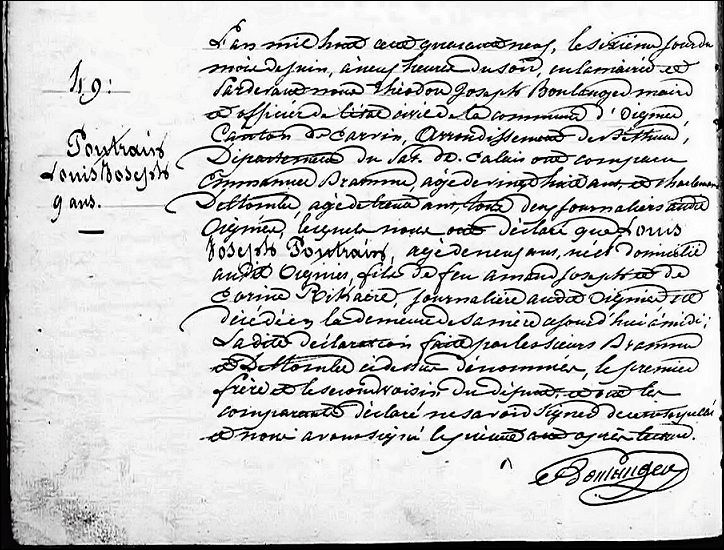 L'an mil huit cent quarante neuf, le sixième jour du
mois de juin, à neuf heures du soir, en la mairie et
Pardevant nous Théodore Joseph Boulanger maire
et officier de l'état civil de la commune d'Oignies,
49:
Canton de Carvin, Arrondissement de Béthune,
Poutrain
Département du Pas-de-Calais ont comparu
Louis Joseph
Emmanuel Bramme, agé de vingt huit ans, et Charlemagne
9 ans.
Delttombe, agé de trente ans, tous deux journaliers audit
Oignies, lesquels nous ont déclaré que Louis
Joseph Poutrain, agé de neuf ans, né et domicilié
audit Oignies, fils de feu amand Joseph et de
journalière audit Oignies est
décédé en la demeure de sa mère cejourd'hui à midi;
Ladite déclaration faite par les sieurs Bramme
et Delttombe ci dessus dénommés, le premier
frère et le second voisin du défunt, et ont les
comparants déclaré ne savoir signer de ce interpellé
et nous avons signé le présent acte après lecture.
Boulanger